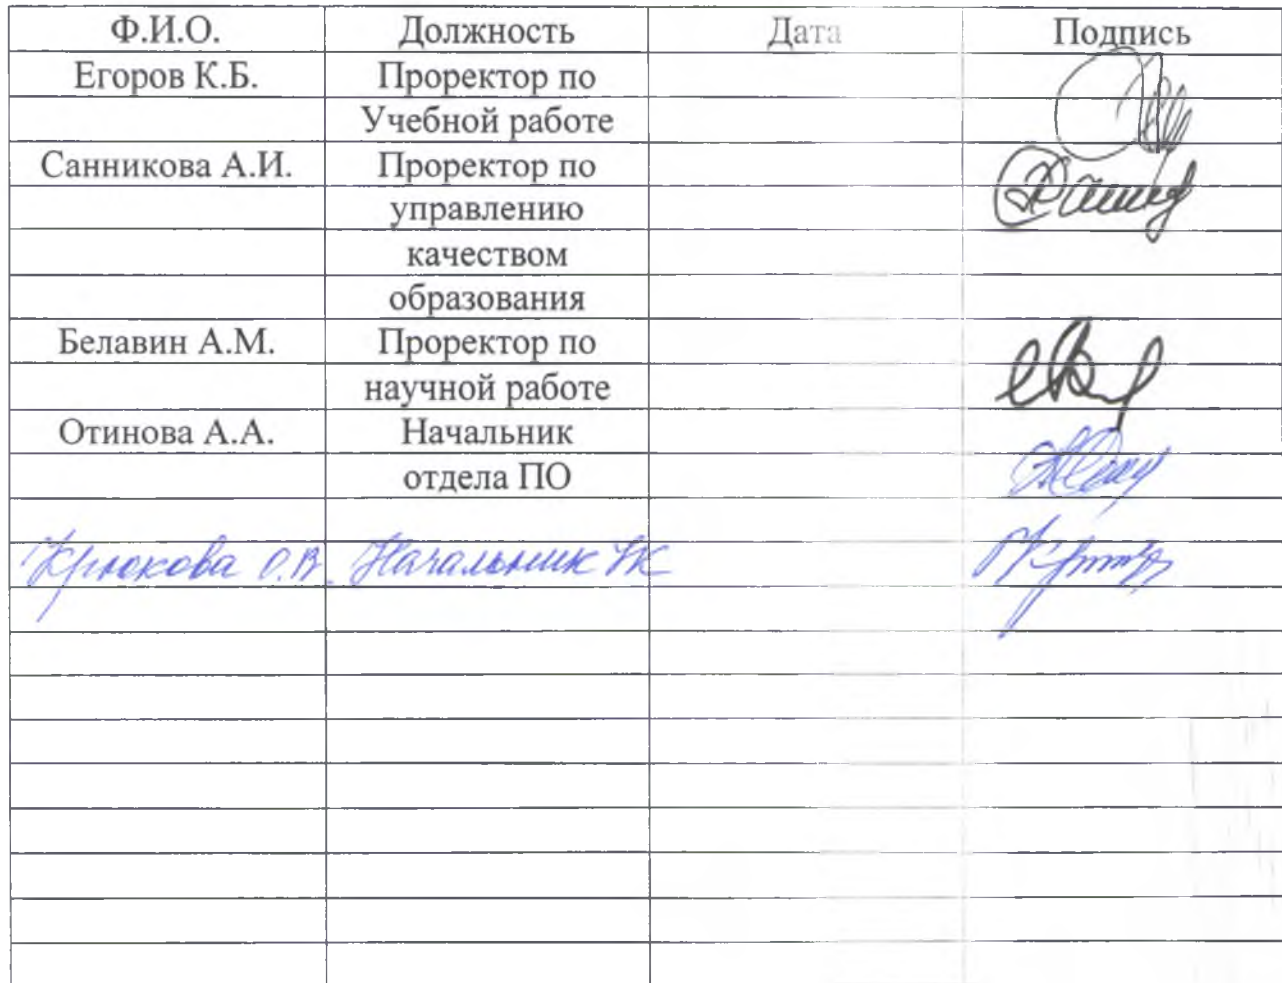 Ф.И.О. Должность Дата Подпись
Егоров К.Б. Проректор по
Учебной работе
Санникова А.И. Проректор по
управлению
качеством
образования
Белавин А.М. Проректор по
научной работе
Отинова А.А. Начальник
отдела ПО
Крюкова О.В. Начальник УК